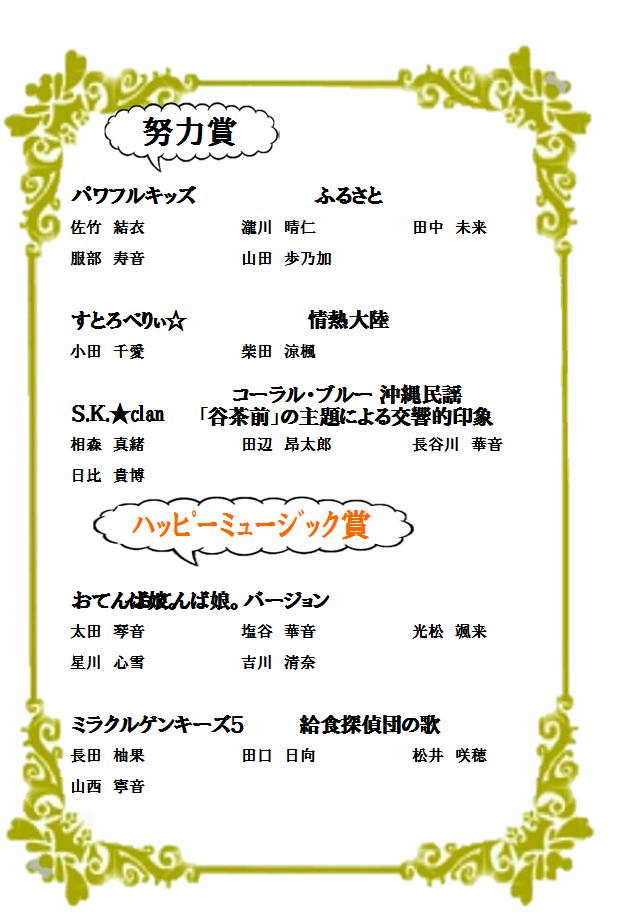 努力賞
パワフルキッズ ふるさと
佐竹 結衣 瀧川 晴仁 田中 未来
服部 寿音 山田 歩乃加
すとろべりぃ☆ 情熱大陸
小田 千愛 柴田 涼楓
コーラル・ブルー 沖縄民謡
S.K.★clan 「谷茶前」の主題による交響的印象
相森 真緒 田辺 昂太郎 長谷川 華音
日比 貴博
ハッピーミュージック賞
おてんば娘。 おてんば娘。バージョン
太田 琴音 塩谷 華音 光松 颯来
星川 心雪 吉川 清奈
ミラクルゲンキーズ5 給食探偵団の歌
長田 柚果 田口 日向 松井 咲穂
山西 寧音